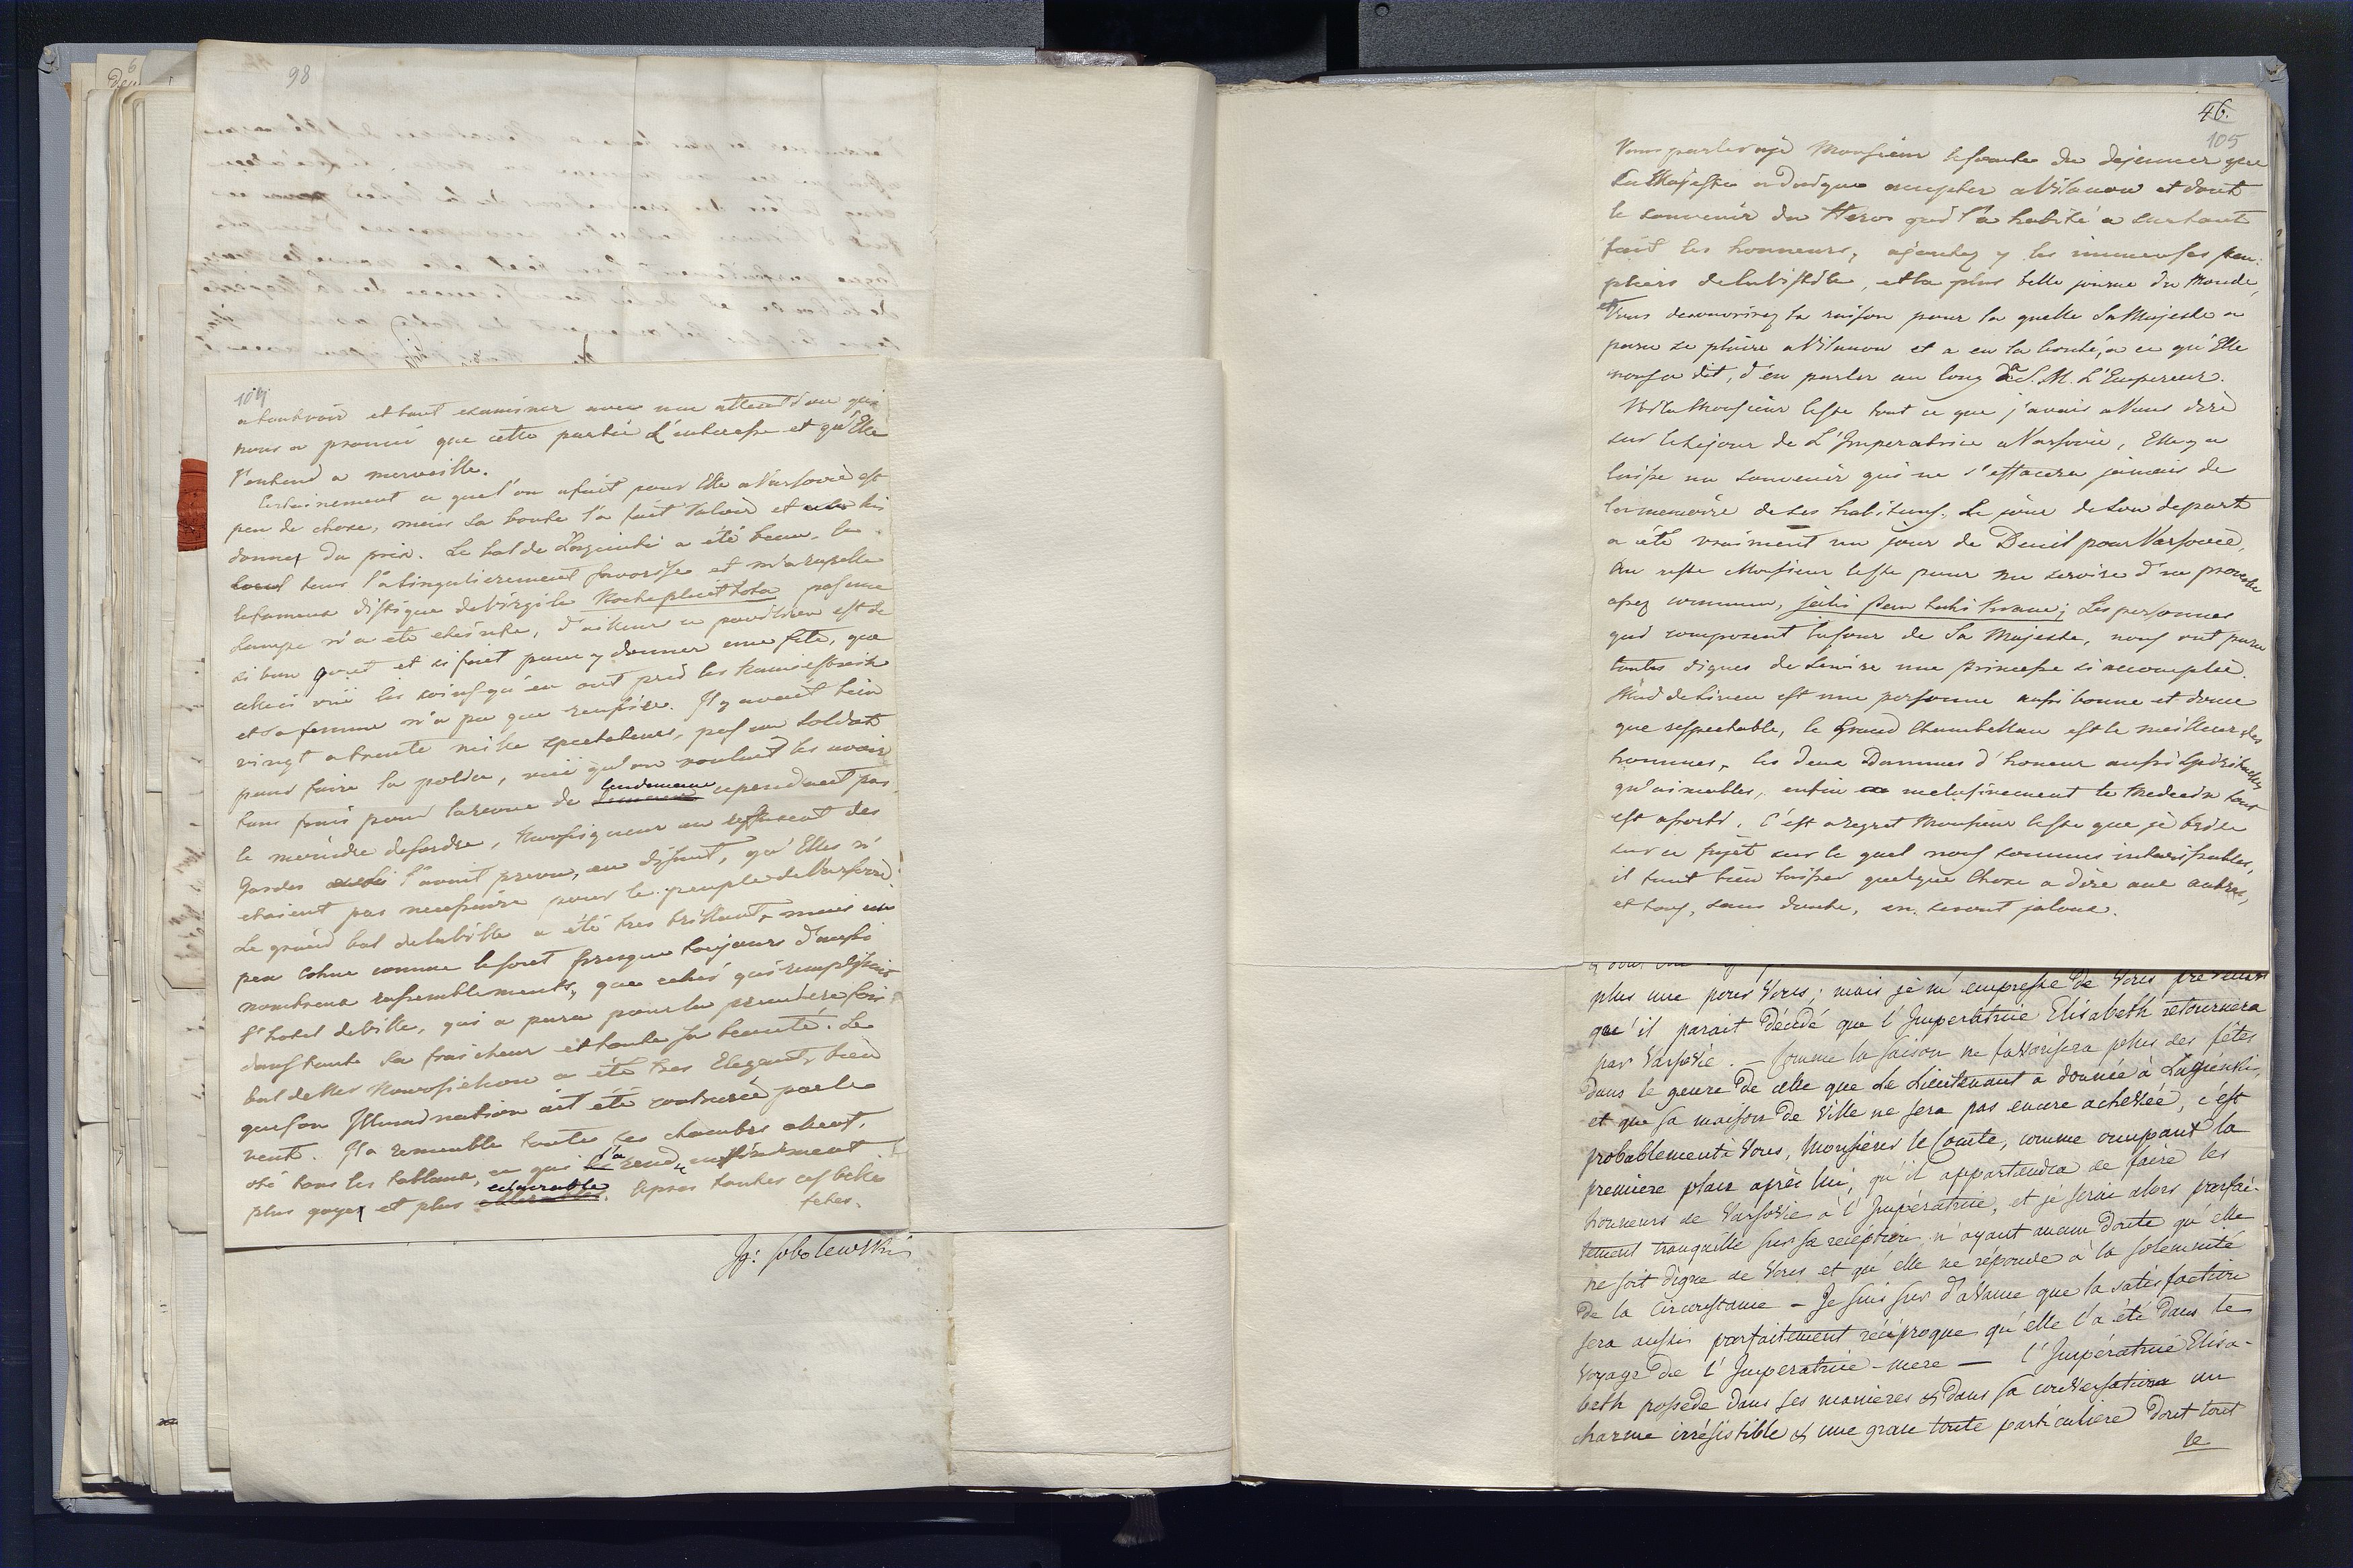 98
104
a tout voir et tout examiner avec une attention qui
nous a prouvé que cette partie l'interesse et qu'Elle
l'entend a merveille.
Certainement ce que l'on a fait pour Elle a Varsovie est
peu de chose, mais sa bonté l'a fait valoir et
donner du prix. Le bal de Łazienki a été beau, le
tems l'a singulierement favorisé et m'a rapellé
le fameux distique de Virgile Nocte pluit tota pas une
lampe n'a été eteinte, d'ailleurs ce pavillon est de
si bon gout et si fait pour y donner une fete, que
celle ci vû les soins qu'en ont pris les
et sa femme n'a pu que reussir. Il y avait bien
vingt a trente mille spectateurs, pas un soldat
pour faire la police, vû qu'on voulait les avoir
tous frais pour la revue de lendemain cependant pas
le moindre desordre, Monseigneur en refusant des
Gardes l'avait prevu, en disant, qu'Elles n'
etaient pas necessaires pour le peuple de Varsovie.
Le grand bal de la Ville a été tres brillant, mais un
peu cohue comme le sont presque toujours d'aussi
nombreux rassemblements, que celui qui remplissait
l'hotel de Ville, qui a paru pour la premiere fois
dans toute sa fraicheur et toute sa beauté. Le
bal de Mr Nowosielzow a été tres Elegant, bien
que son Illumination ait été contrariée par le
vent. Il a remeublé toutes ses chambres
oté tous les tableaux, ce qui l'a rendu infiniment
plus gaye et plus Apres toutes ces belles
fetes.
Ig: Sobolewski
46.
105
Vous parlerai-je Monsieur le Comte du dejeuner que
Sa Majesté a daigné accepter a Vilanow et dont
le souvenir du Heros qui l'a habité a surtout
fait les honneurs, ajoutez y les immenses peu-
pliers de la Vistule, et la plus belle journée du Monde,
et Vous decouvrirez la raison pour la quelle Sa Majesté a
paru se plaire a Vilanow et a eu la bonté, a ce qu'Elle
nous a dit, d'en parler au long à S. M. L'Empereur.
Voila Monsieur le Cte tout ce que j'avais a Vous dire
sur le sejour de L'Imperatrice a Varsovie, Elle y a
laissé un souvenir qui ne s'effacera jamais de
la memoire de ses habitans. Le jour de son depart
a été vraiment un jour de Deuil pour Varsovie,
Au reste Monsieur le Cte pour me servir d'un proverbe
assez commun, jaki pan taki kram; Les personnes
qui composent la cour de Sa Majesté, nous ont paru
toutes dignes de suivre une Princesse si accomplie.
Mad de Lieven est une personne aussi bonne et douce
que respectable, le Grand Chambellan est le meilleur des
hommes, les deux Dammes d'honeur aussi spirituelles
qu'aimables, enfin inclusivement le Medecin tout
est assorti. C'est a regret Monsieur le Cte que je brise
sur ce sujet sur le quel nous sommes intarissables,
il faut bien laisser quelque chose a dire aux autres,
et tous, sans doute, en seront jaloux.
plus une pour Vous; mais je m'empresse de Vous prevenir
qu'il parait décidé que l'Imperatrice Elisabeth retournera
par Varsovie. – Comme la saison ne favorisera plus des fêtes
dans le genre de celle que le Lieutenant a donnée à Łazienki,
et que sa maison de Ville ne sera pas encore achevée, c'est
probablement à Vous, Monsieur le Comte, comme occupant la
premiere place après lui, qu'il appartiendra de faire les
honneurs de Varsovie à l'Impératrice, et je serai alors parfai-
tement tranquille sur sa reception, n'ayant aucun doute qu'elle
ne soit digne de Vous et qu'elle ne réponde à la solemnité
de la circonstance – Je suis sur d'avance que la satisfaction
sera aussi parfaitement réciproque qu'elle l'a été dans le
voyage de l'Imperatrice-mere – l'Impératrice Elisa-
beth possede dans ses manieres & dans sa conversation un
charme irrésistible & une grace toute particuliere dont tout
le